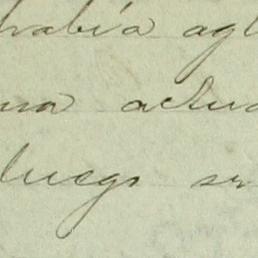 había agl
una actua
luego se